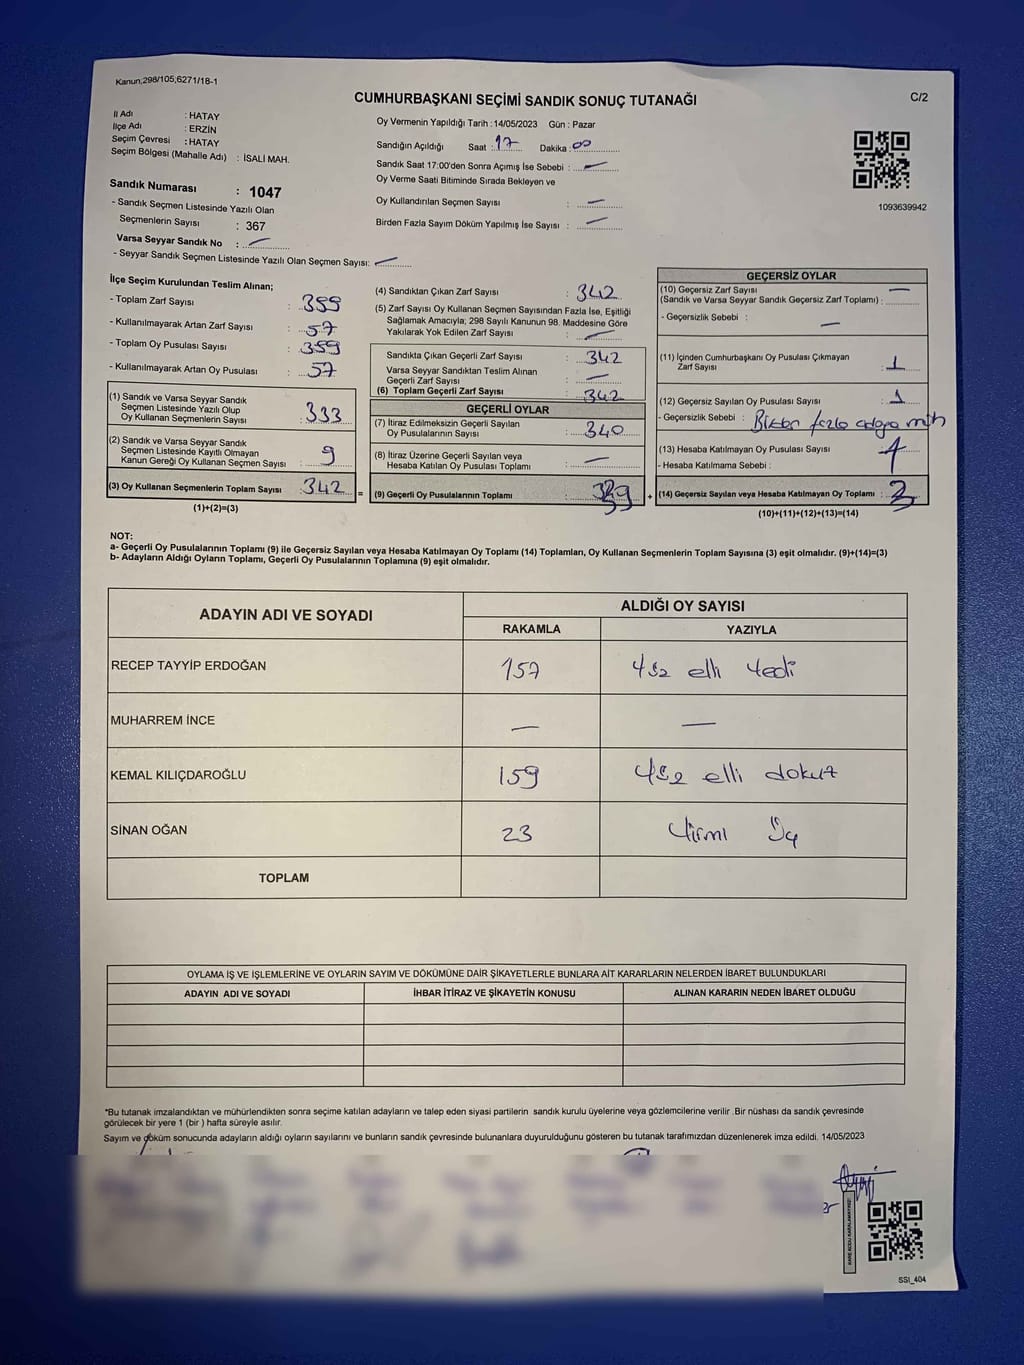 Kanun;298/105,6271/18-1
CUMHURBAŞKANI SEÇİMİ SANDIK SONUÇ TUTANAĞI
C/2
İl Adı : HATAY
İlçe Adı : ERZİN
Seçim Çevresi : HATAY
Seçim Bölgesi (Mahalle Adı) : İSALİ MAH.
Sandık Numarası : 1047
- Sandık Seçmen Listesinde Yazılı Olan
Seçmenlerin Sayısı : 367
Varsa Seyyar Sandık No : —
- Seyyar Sandık Seçmen Listesinde Yazılı Olan Seçmen Sayısı: —
Oy Vermenin Yapıldığı Tarih : 14/05/2023 Gün : Pazar
Sandığın Açıldığı Saat : 17 Dakika : 00
Sandık Saat 17:00'den Sonra Açımış İse Sebebi : —
Oy Verme Saati Bitiminde Sırada Bekleyen ve
Oy Kullandırılan Seçmen Sayısı : —
Birden Fazla Sayım Döküm Yapılmış İse Sayısı : —
1093639942
İlçe Seçim Kurulundan Teslim Alınan;
- Toplam Zarf Sayısı : 359
- Kullanılmayarak Artan Zarf Sayısı : 57
- Toplam Oy Pusulası Sayısı : 359
- Kullanılmayarak Artan Oy Pusulası : 57
(1) Sandık ve Varsa Seyyar Sandık
Seçmen Listesinde Yazılı Olup
Oy Kullanan Seçmenlerin Sayısı : 333
(2) Sandık ve Varsa Seyyar Sandık
Seçmen Listesinde Kayıtlı Olmayan
Kanun Gereği Oy Kullanan Seçmen Sayısı : 9
(3) Oy Kullanan Seçmenlerin Toplam Sayısı : 342 =
(1)+(2)=(3)
(4) Sandıktan Çıkan Zarf Sayısı : 342
(5) Zarf Sayısı Oy Kullanan Seçmen Sayısından Fazla İse, Eşitliği
Sağlamak Amacıyla; 298 Sayılı Kanunun 98. Maddesine Göre
Yakılarak Yok Edilen Zarf Sayısı : —
Sandıkta Çıkan Geçerli Zarf Sayısı : 342
Varsa Seyyar Sandıktan Teslim Alınan
Geçerli Zarf Sayısı : —
(6) Toplam Geçerli Zarf Sayısı : 342
GEÇERLİ OYLAR
(7) İtiraz Edilmeksizin Geçerli Sayılan
Oy Pusulalarının Sayısı : 340
(8) İtiraz Üzerine Geçerli Sayılan veya
Hesaba Katılan Oy Pusulası Toplamı : —
(9) Geçerli Oy Pusulalarının Toplamı : 339 +
GEÇERSİZ OYLAR
(10) Geçersiz Zarf Sayısı —
(Sandık ve Varsa Seyyar Sandık Geçersiz Zarf Toplamı) :
- Geçersizlik Sebebi : —
(11) İçinden Cumhurbaşkanı Oy Pusulası Çıkmayan
Zarf Sayısı : 1
(12) Geçersiz Sayılan Oy Pusulası Sayısı : 1
- Geçersizlik Sebebi : Birden fazla adaya
(13) Hesaba Katılmayan Oy Pusulası Sayısı : 1
- Hesaba Katılmama Sebebi :
(14) Geçersiz Sayılan veya Hesaba Katılmayan Oy Toplamı : 3
(10)+(11)+(12)+(13)=(14)
NOT:
a- Geçerli Oy Pusulalarının Toplamı (9) ile Geçersiz Sayılan veya Hesaba Katılmayan Oy Toplamı (14) Toplamları, Oy Kullanan Seçmenlerin Toplam Sayısına (3) eşit olmalıdır. (9)+(14)=(3)
b- Adayların Aldığı Oyların Toplamı, Geçerli Oy Pusulalarının Toplamına (9) eşit olmalıdır.
ADAYIN ADI VE SOYADI
ALDIĞI OY SAYISI
RAKAMLA YAZIYLA
RECEP TAYYİP ERDOĞAN 157 Yüz elli Yedi
MUHARREM İNCE — —
KEMAL KILIÇDAROĞLU 159 Yüz elli dokuz
SİNAN OĞAN 23 Yirmi Üç
TOPLAM
OYLAMA İŞ VE İŞLEMLERİNE VE OYLARIN SAYIM VE DÖKÜMÜNE DAİR ŞİKAYETLERLE BUNLARA AİT KARARLARIN NELERDEN İBARET BULUNDUKLARI
ADAYIN ADI VE SOYADI İHBAR İTİRAZ VE ŞİKAYETİN KONUSU ALINAN KARARIN NEDEN İBARET OLDUĞU
*Bu tutanak imzalandıktan ve mühürlendikten sonra seçime katılan adayların ve talep eden siyasi partilerin sandık kurulu üyelerine veya gözlemcilerine verilir .Bir nüshası da sandık çevresinde
görülecek bir yere 1 (bir ) hafta süreyle asılır.
Sayım ve döküm sonucunda adayların aldığı oyların sayılarını ve bunların sandık çevresinde bulunanlara duyurulduğunu gösteren bu tutanak tarafımızdan düzenlenerek imza edildi. 14/05/2023
KARE KODU KARALAMAYINIZ!
SSI_404